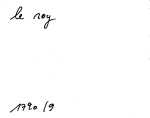 le roy
1790/9